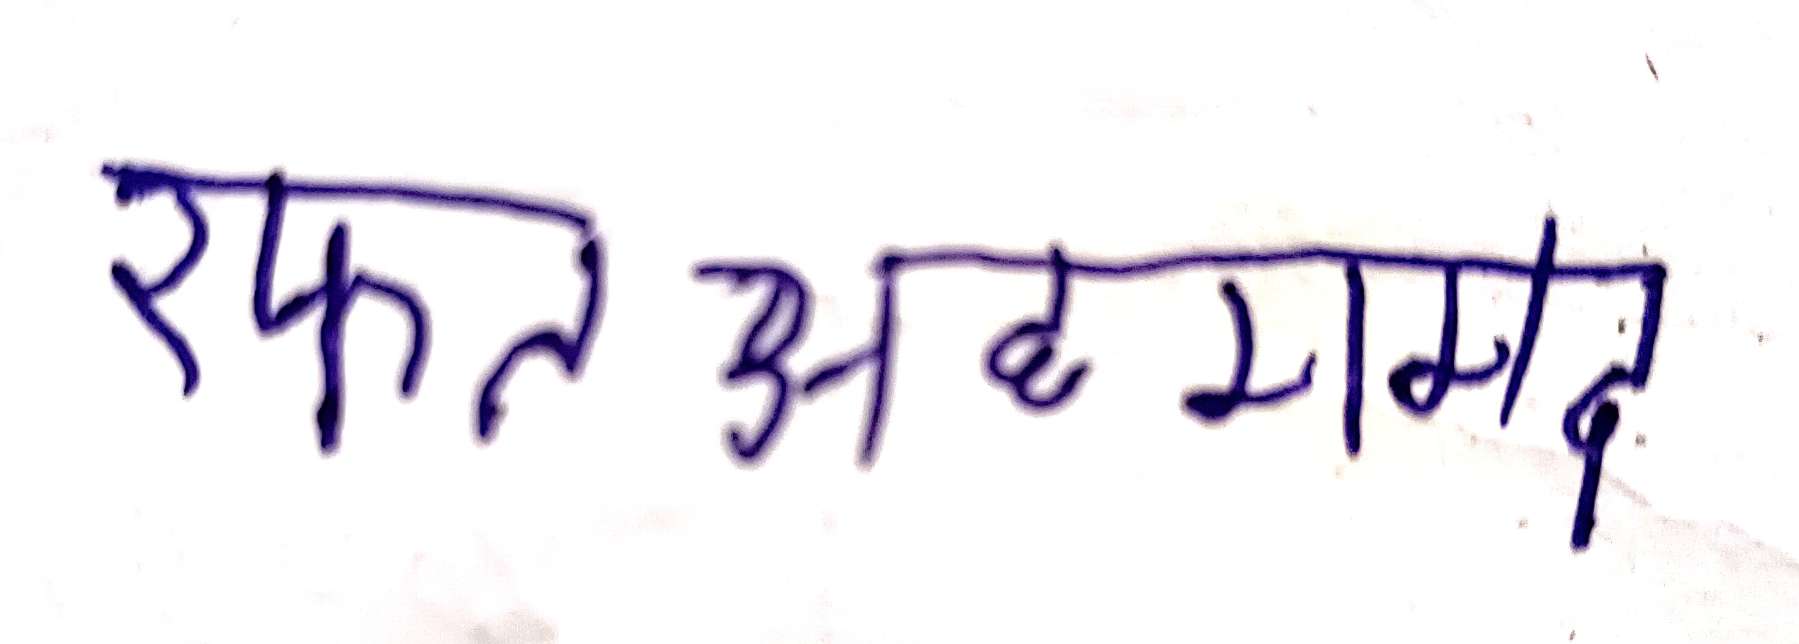 रफत अहममद